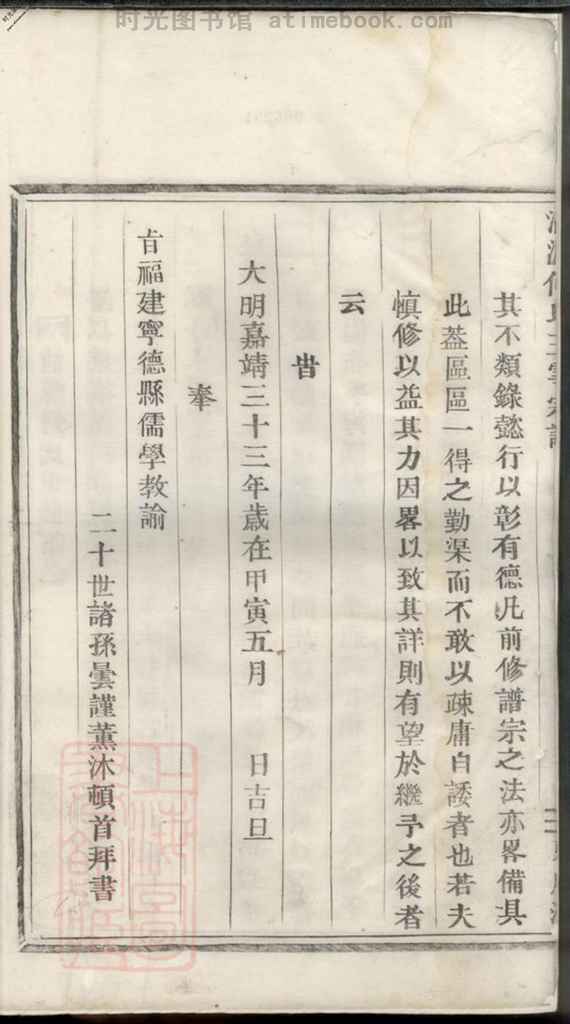 时光图书馆 atimebook.com
其不類錄懿行以彰有德凡前修譜宗之法亦畧備具
此葢區區一得之勤渠而不敢以疎庸自諉者也若夫
慎修以益其力因畧以致其詳則有望於繼予之後者
云
旹
大明嘉靖三十三年歲在甲寅五月 日吉旦
奉
旨福建寧德縣儒學教諭
二十世諸孫曇謹薰沐頓首拜書